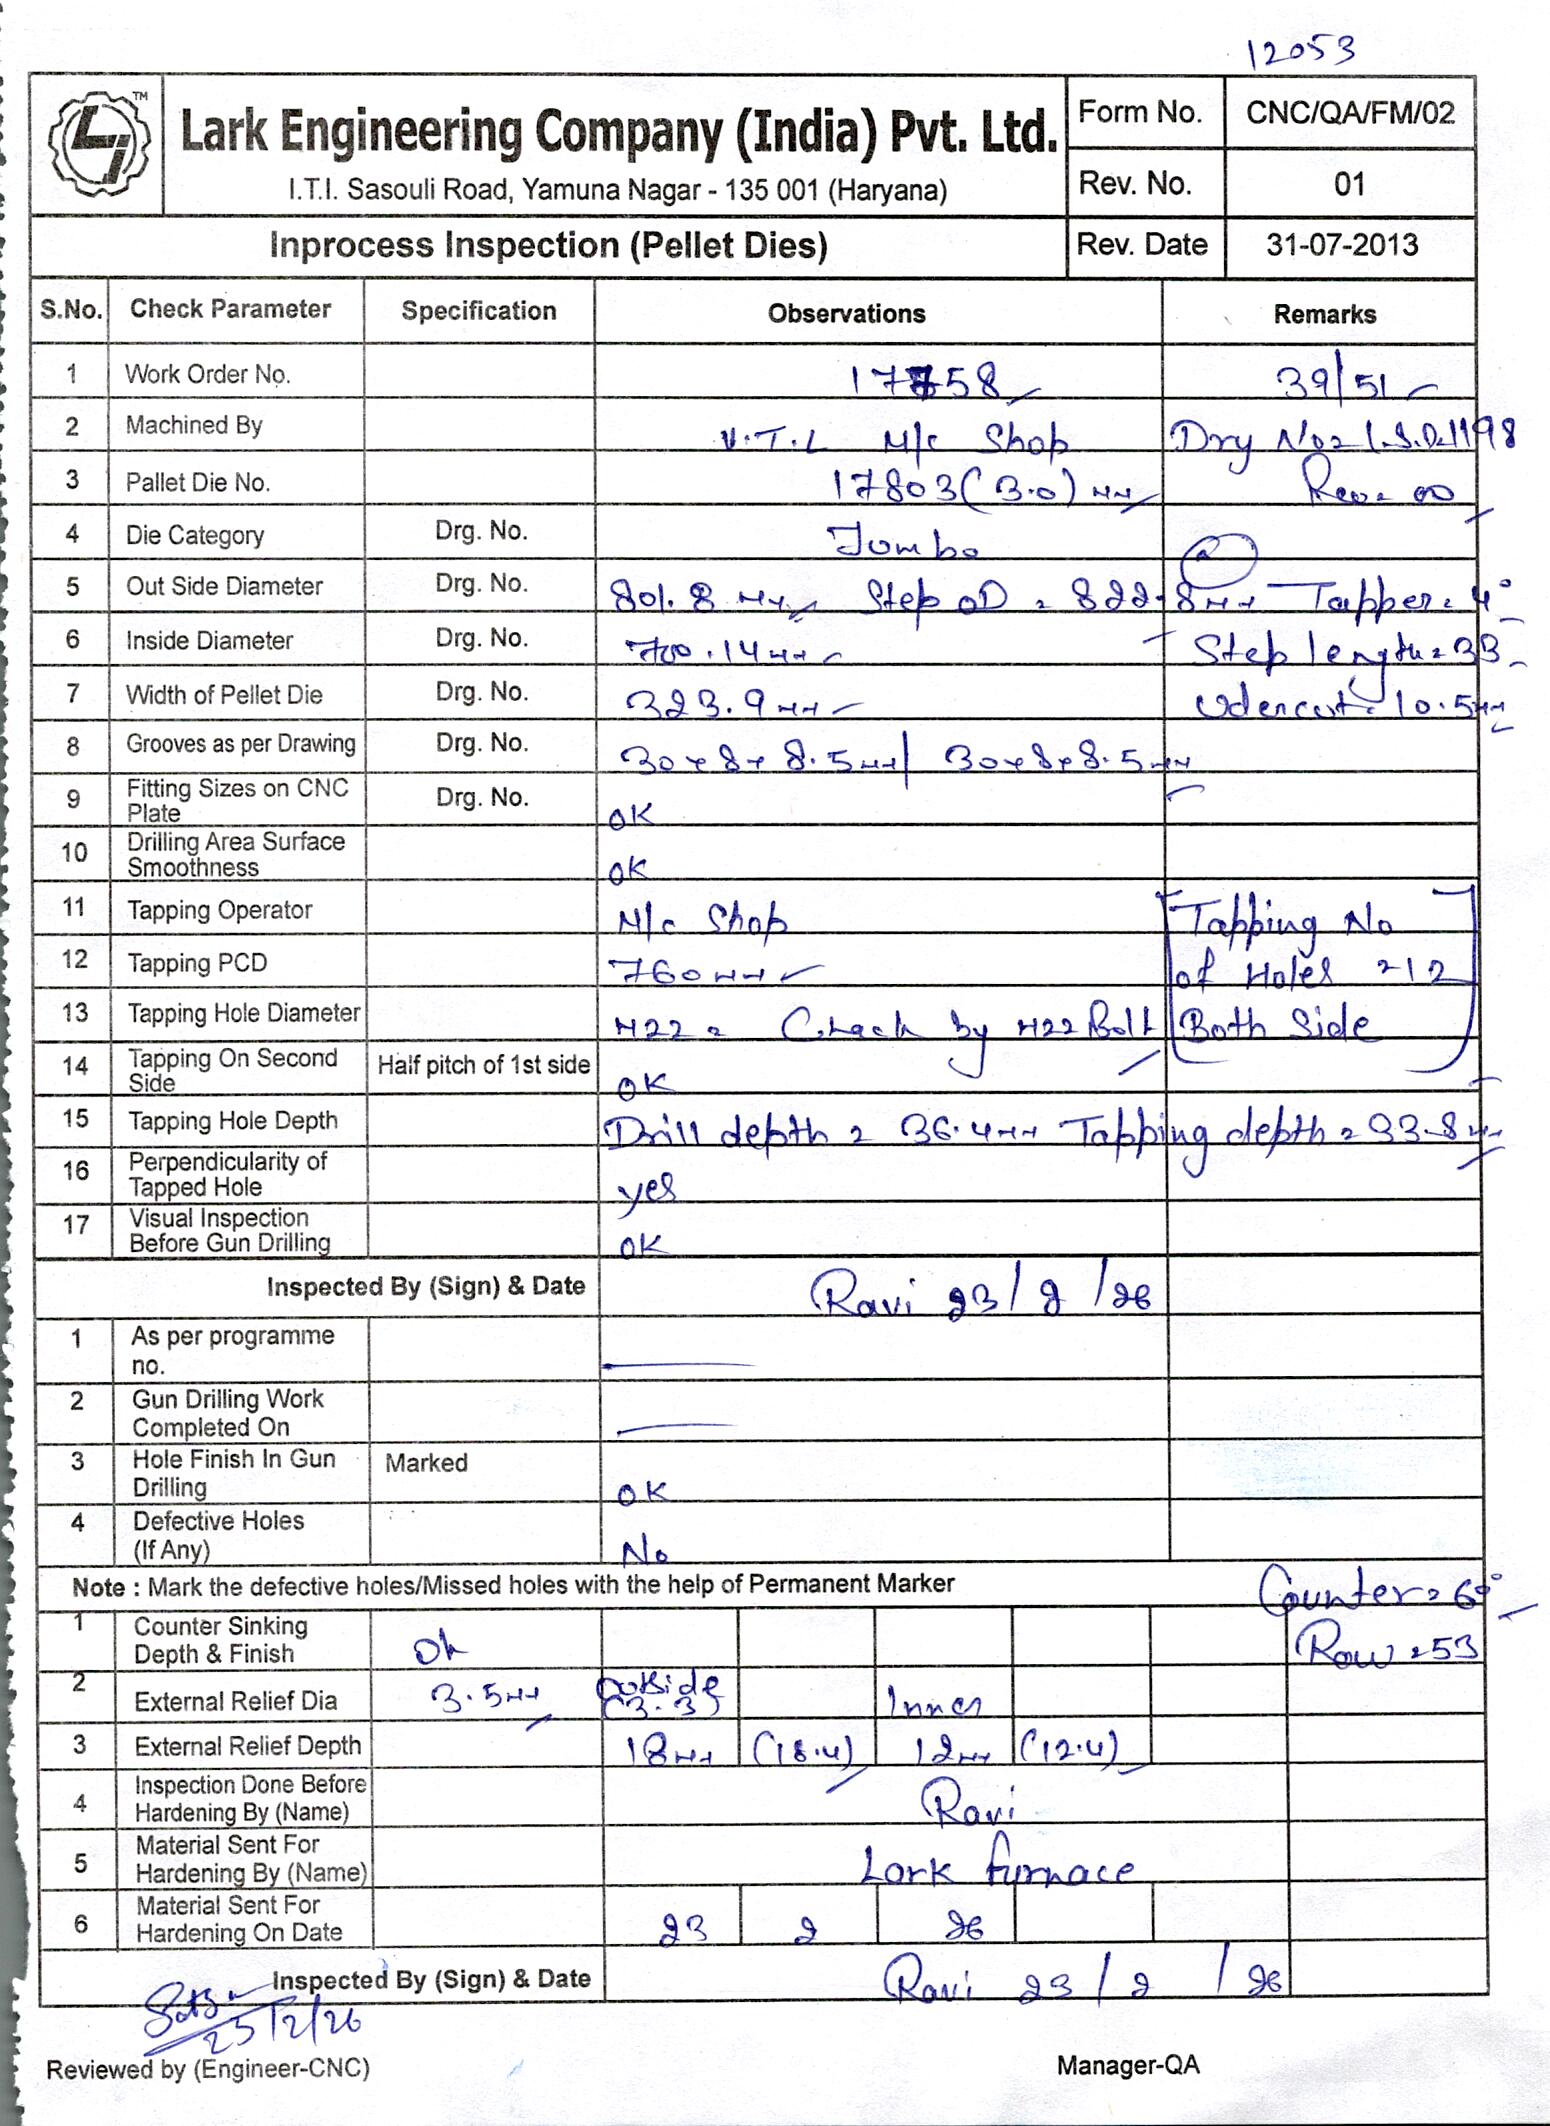 12053
TM
Lark Engineering Company (India) Pvt. Ltd.
I.T.I. Sasouli Road, Yamuna Nagar - 135 001 (Haryana)
Form No. CNC/QA/FM/02
Rev. No. 01
Inprocess Inspection (Pellet Dies)
Rev. Date 31-07-2013
S.No. Check Parameter Specification Observations Remarks
1 Work Order No. 17758 39/51
2 Machined By V.T.L M/c Shop Drg No = L.S.D.1198
3 Pallet Die No. 17803 (3.0) mm Rev = 00
4 Die Category Drg. No. Jumbo
5 Out Side Diameter Drg. No. 801.8 mm Step OD = 822.8mm Tapper = 4°
6 Inside Diameter Drg. No. 700.14mm Step length = 33
7 Width of Pellet Die Drg. No. 323.9mm Udercut = 10.5mm
8 Grooves as per Drawing Drg. No. 30x8x8.5mm / 30x8x8.5mm
9 Fitting Sizes on CNC Plate Drg. No. OK
10 Drilling Area Surface Smoothness OK
11 Tapping Operator M/c Shop Tapping No
12 Tapping PCD 760mm of Holes = 12
13 Tapping Hole Diameter M22 = Check by M22 Bolt Both Side
14 Tapping On Second Side Half pitch of 1st side OK
15 Tapping Hole Depth Drill depth = 36.4mm Tapping depth = 33.8mm
16 Perpendicularity of Tapped Hole yes
17 Visual Inspection Before Gun Drilling OK
Inspected By (Sign) & Date Ravi 23/2/26
1 As per programme no.
2 Gun Drilling Work Completed On
3 Hole Finish In Gun Drilling Marked OK
4 Defective Holes (If Any) No
Note : Mark the defective holes/Missed holes with the help of Permanent Marker Counter = 60°
1 Counter Sinking Depth & Finish Ok Row = 53
2 External Relief Dia 3.5mm outside (3.3) Inner
3 External Relief Depth 18mm (18.4) 12mm (12.4)
4 Inspection Done Before Hardening By (Name) Ravi
5 Material Sent For Hardening By (Name) Lark furnace
6 Material Sent For Hardening On Date 23 2 26
Inspected By (Sign) & Date Ravi 23/2/26
25/2/26
Reviewed by (Engineer-CNC) Manager-QA